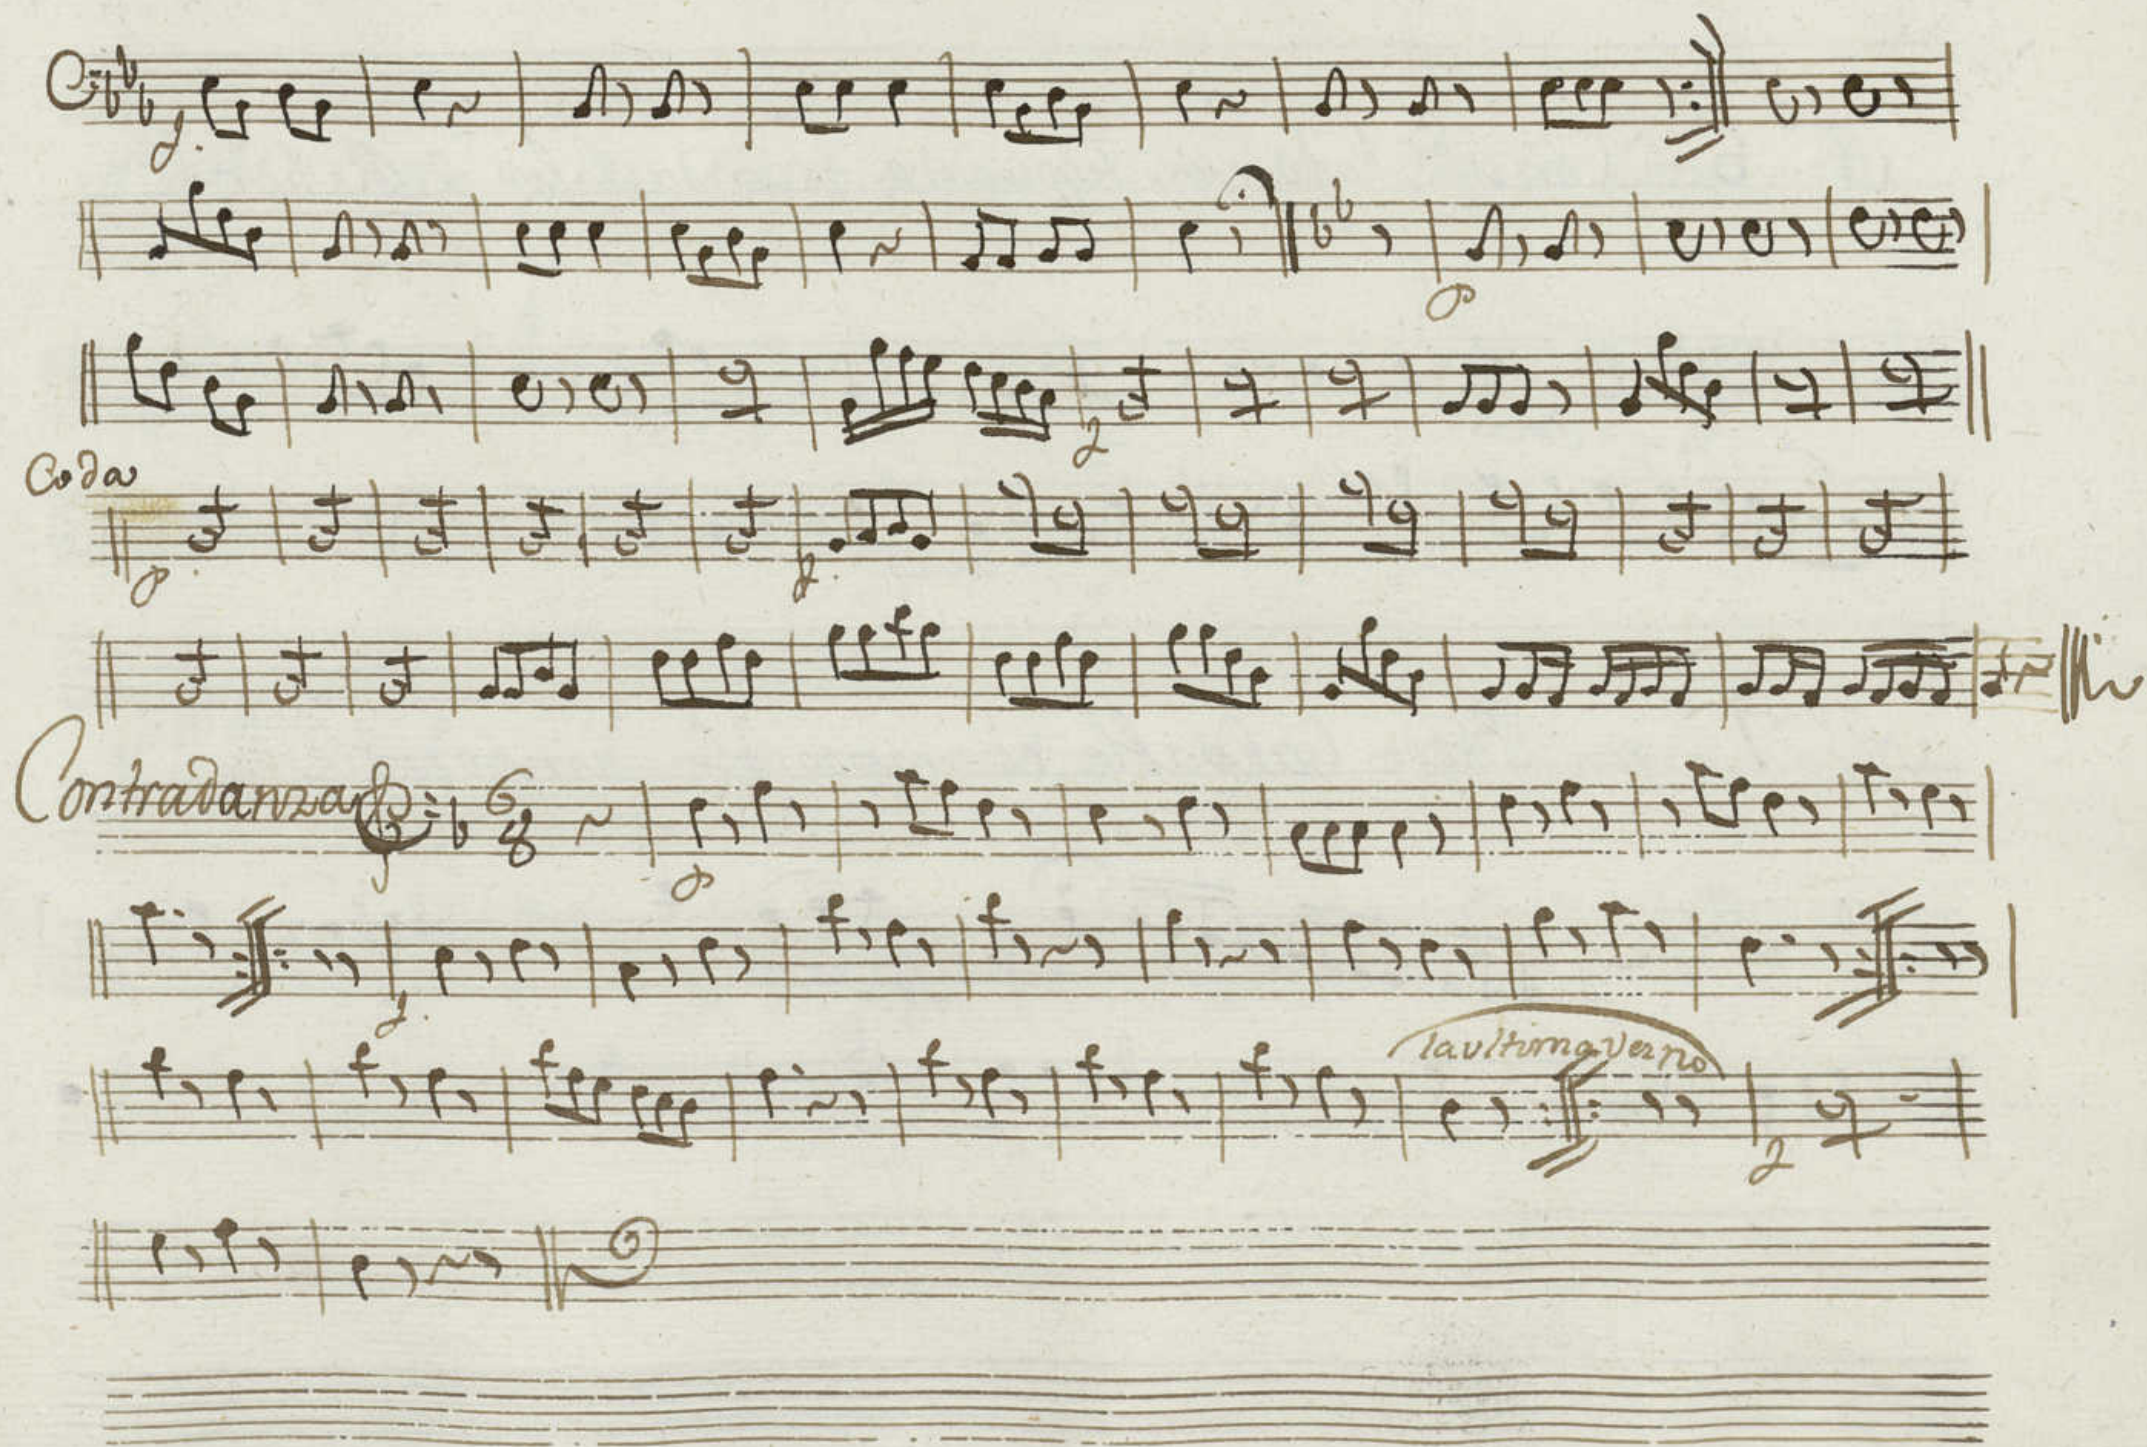 Coda
Contradanza 6/8
la ultima vez no